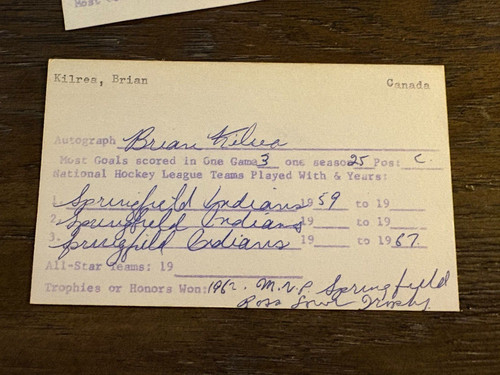 Most
Kilrea, Brian Canada
Autograph Brian Kilrea
Most Goals scored in One Game 3 one season 25 Pos: C.
National Hockey League Teams Played With & Years:
1. Springfield Indians 1959 to 19
2. Springfield Indians 19 to 19
3. Springfield Indians 19 to 1967.
All-Star Teams: 19
Trophies or Honors Won: 1962. M.V.P. Springfield
Ross Trophy.